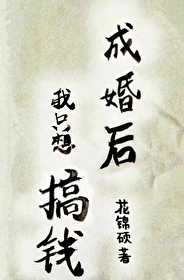 成婚后
我只想
搞钱
花锦硕 著